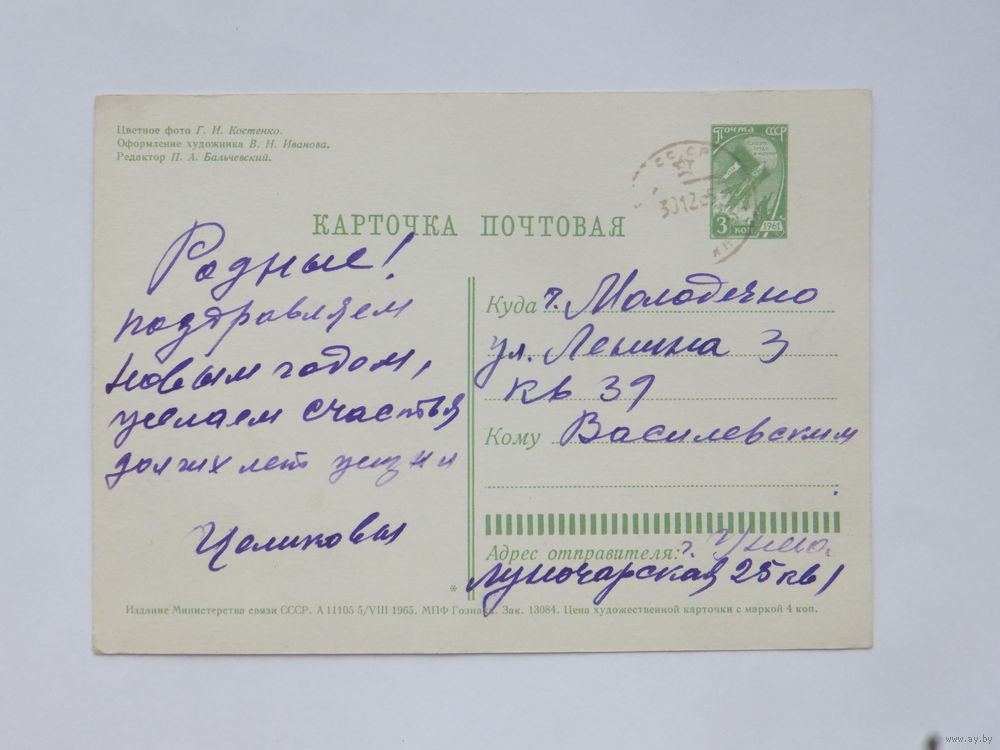 Цветное фото Г. И. Костенко.
Оформление художника В. Н. Иванова.
Редактор П. А. Бальчевский.
ПОЧТА СССР
3 КОП 1961
СССР
30 12 65
КАРТОЧКА ПОЧТОВАЯ
Родные!
поздравляем
Новым годом,
желаем счастья
долгих лет жизни
Целиковы
Куда г. Молодечно
ул. Ленина 3
кв 39
Кому Василевским
Адрес отправителя: г.
Луночарская 25 кв 1
*
Издание Министерства связи СССР. А 11105 5/VIII 1965. МПФ Гознака. Зак. 13084. Цена художественной карточки с маркой 4 коп.
www.ay.by